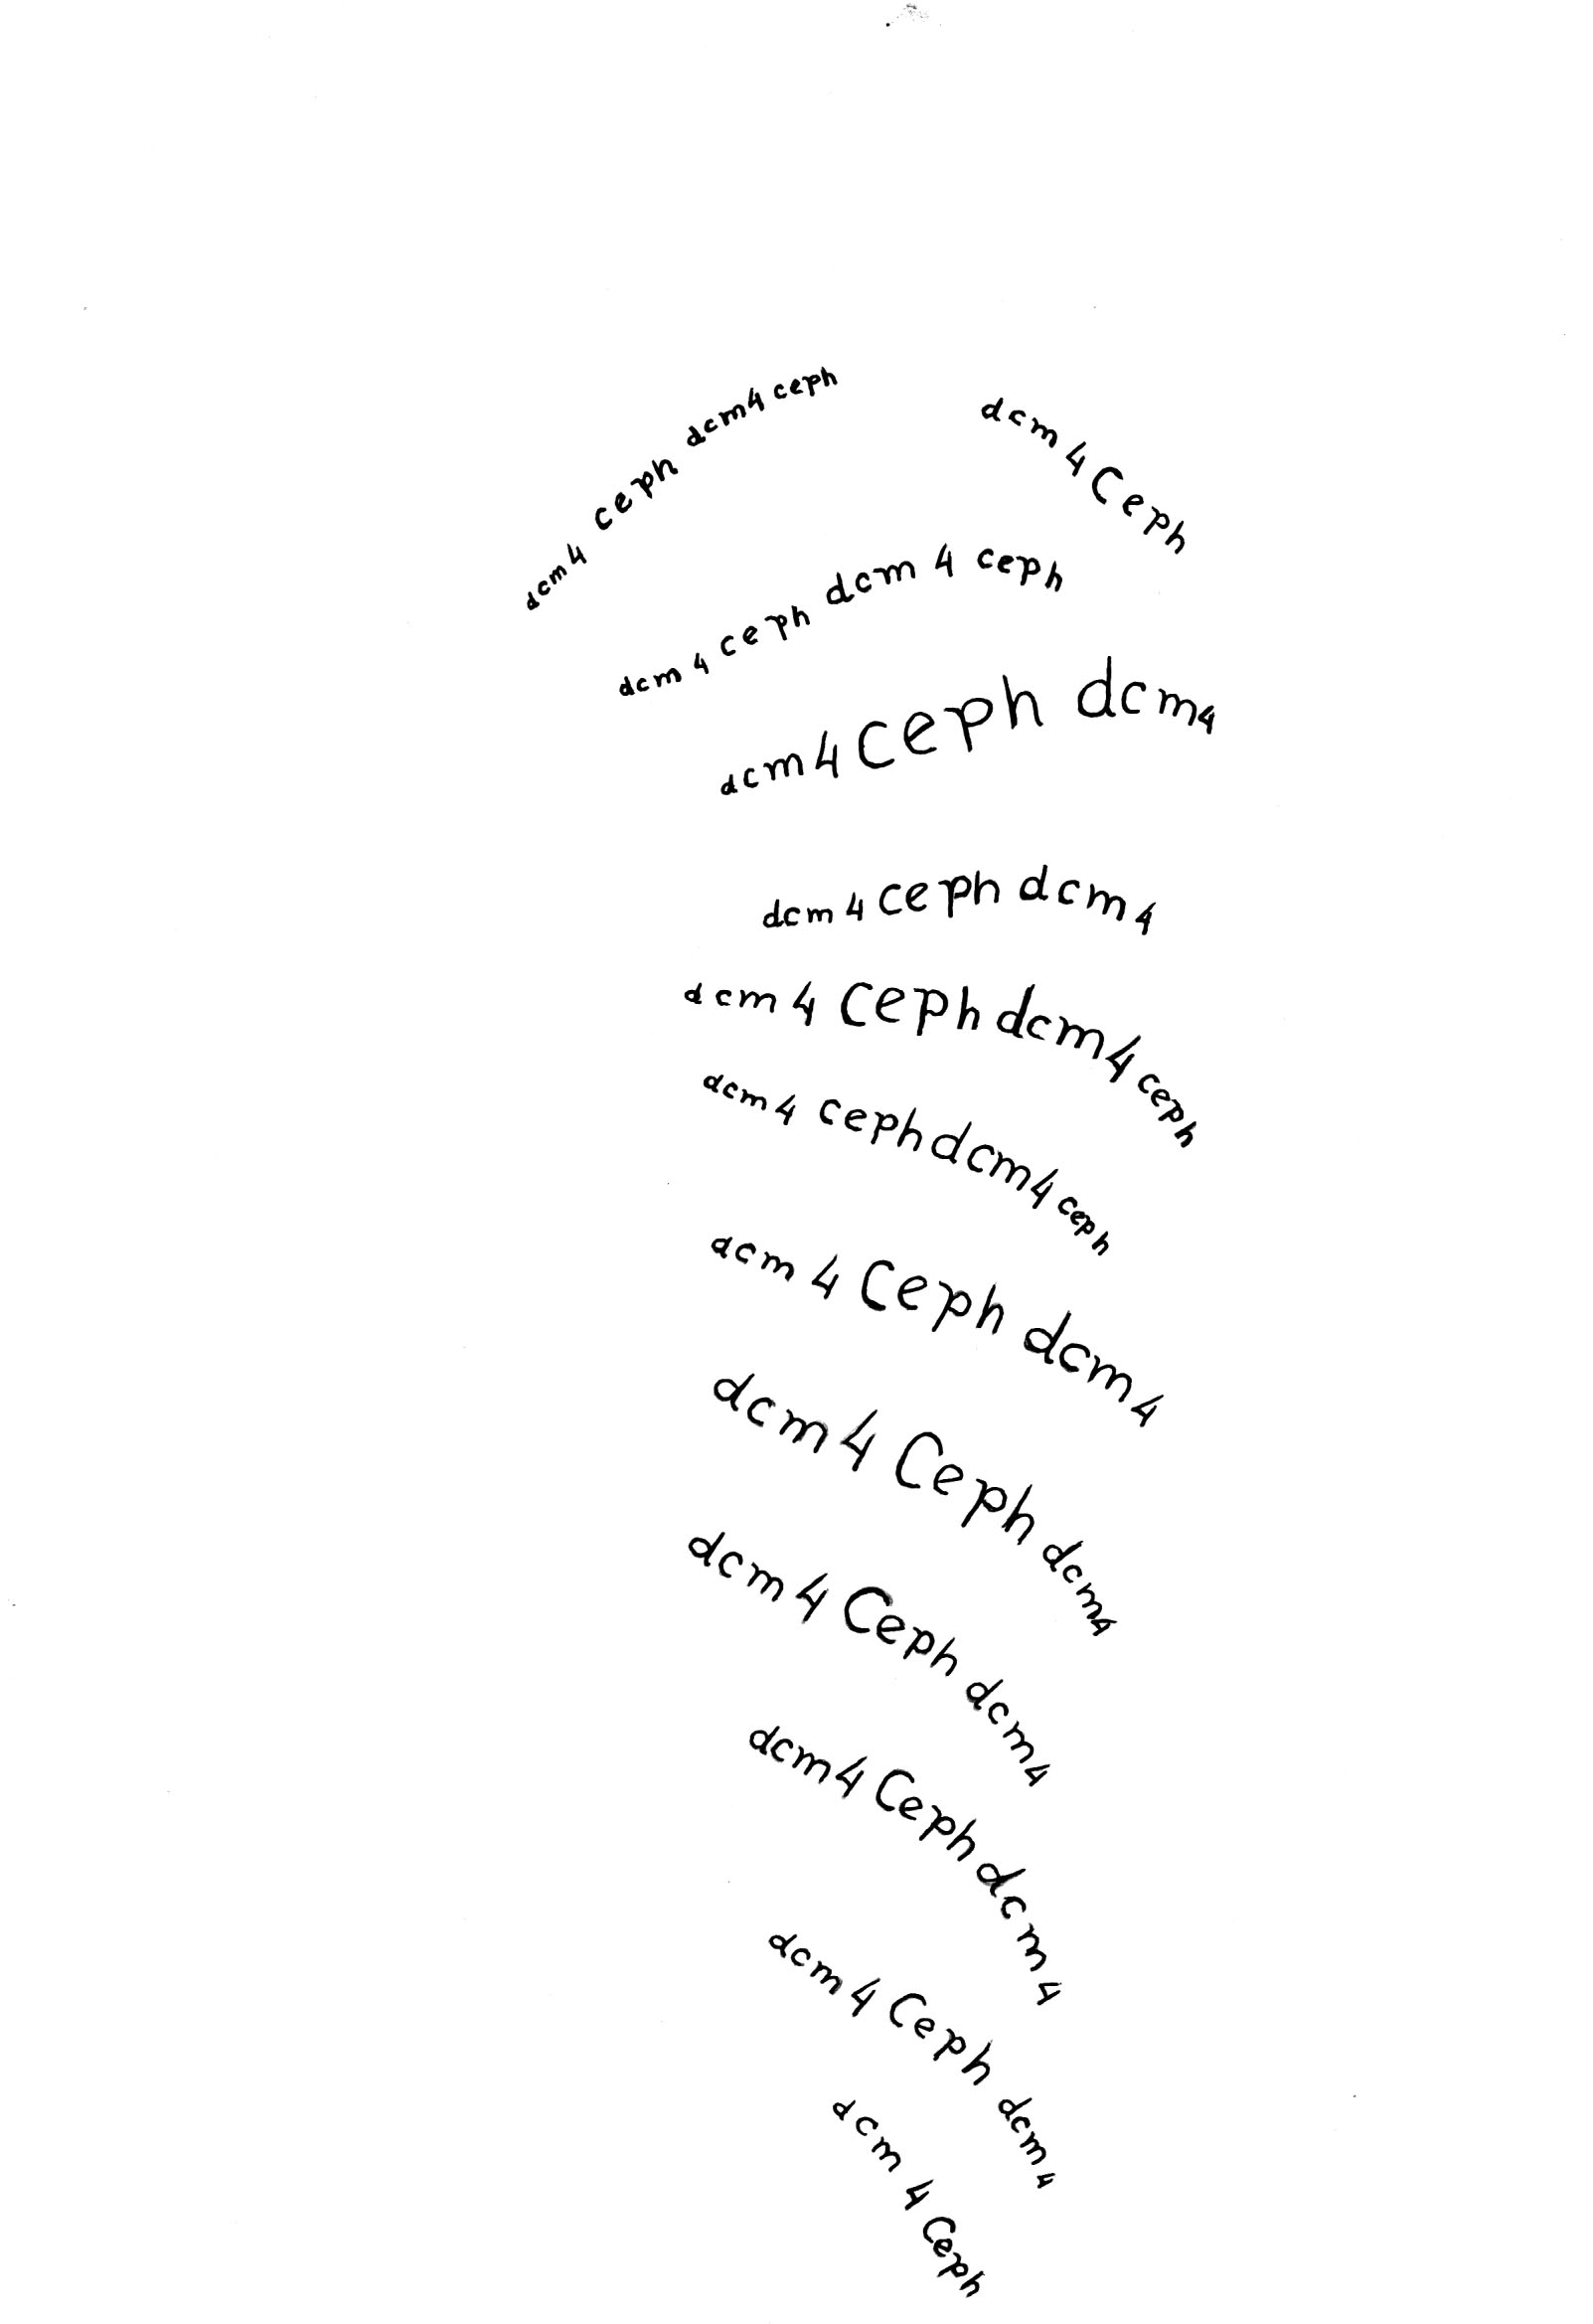 dcm4 ceph dcm4 ceph
dcm 4 Ceph
dcm 4 ceph dcm 4 ceph
dcm4 ceph dcm4
dcm 4 ceph dcm 4
dcm 4 ceph dcm4 ceph
dcm 4 ceph dcm4 ceph
dcm 4 Ceph dcm 4
dcm 4 Ceph dcm4
dcm 4 Ceph dcm4
dcm4 Ceph dcm 4
dcm 4 Ceph dcm 4
dcm 4 Ceph